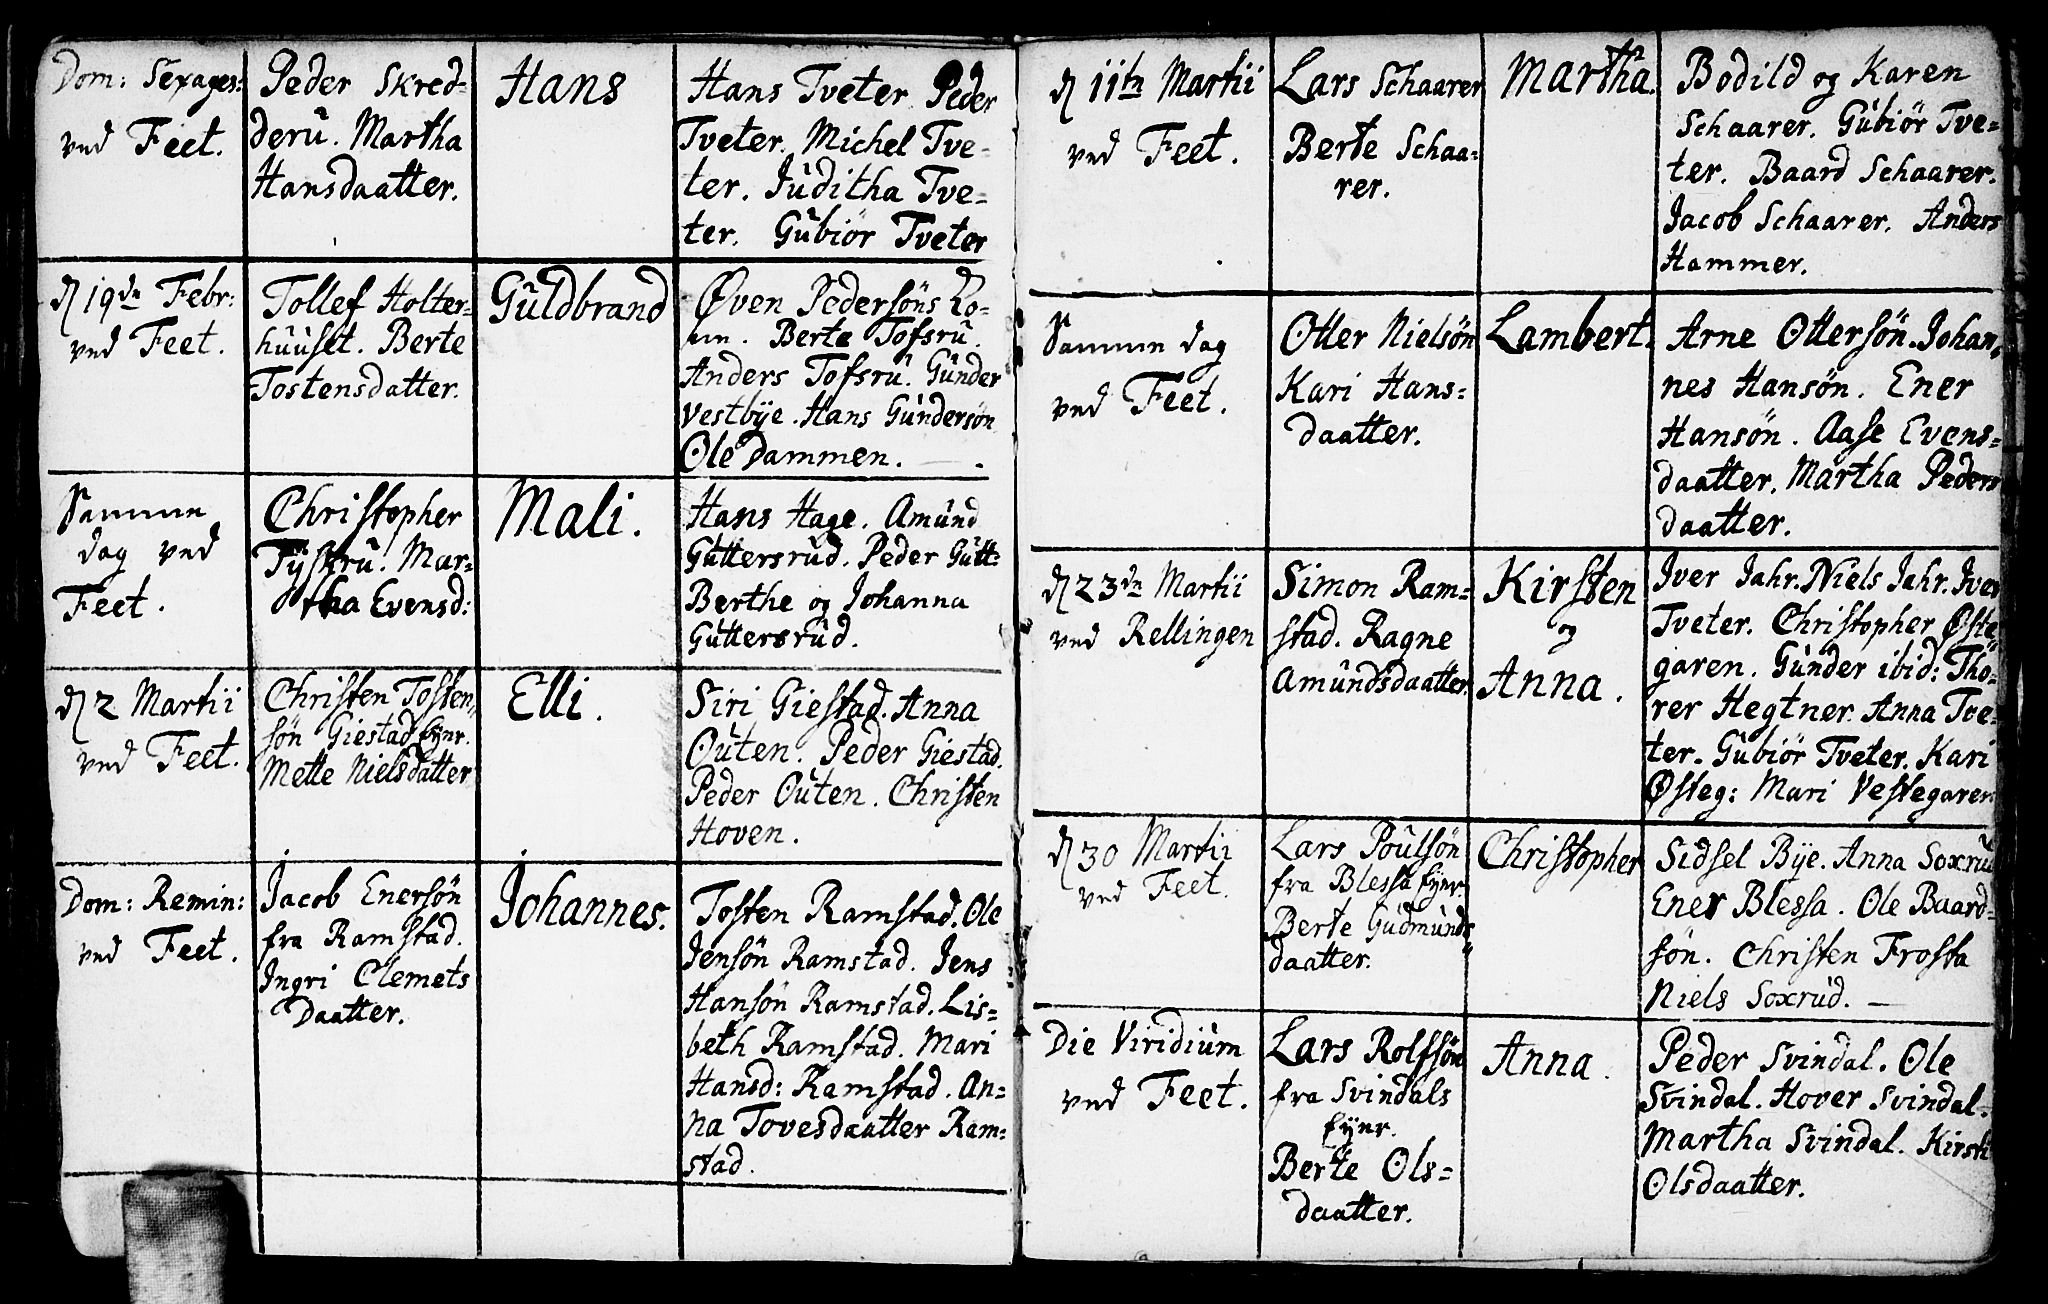 Dom: Sexages:
ved Feet.
Peder Skred-
deru. Martha
Hansdaatter.
Hans
Hans Tveter Peder
Tveter. Michel Tve-
ter. Juditha Tve-
ter. Gubiör Tveter
19de Febr:
ved Feet.
Tollef Holter-
huuset. Berte
Tostensdatter.
Guldbrand
Øven Pedersöns Ko-
ne. Berte Tofsru.
Anders Tofsru. Gunder
Vestbÿe. Hans Gundersön
Ole Dammen.
Samme
dag ved
Feet.
Christopher
Tyskru. Mar-
tha Evensd:
Mali.
Hans Hage. Amund
Guttersrud. Peder Gutt:
Berthe og Johanna
Guttersrud.
2 Martii
ved Feet.
Christen Tosten-
sön Giestad Eyer.
Mette Nielsdatter
Elli.
Siri Giestad. Anna
Outen. Peder Giestad.
Peder Outen. Christen
Hoven.
Dom: Remin:
ved Feet.
Jacob Enersön
fra Ramstad.
Ingri Clemets
Daatter.
Johannes.
Tosten Ramstad. Ole
Jensön Ramstad. Jens
Hansön Ramstad. Lis-
beth Ramstad. Mari
Hansd: Ramstad. An-
na Tovesdaatter Ram-
stad.
11te Martii
ved Feet.
Lars Schaarer
Berte Schaa-
rer.
Martha.
Bodild og Karen
Schaarer. Gubiör Tve-
ter. Baard Schaarer.
Jacob Schaarer. Anders
Hammer.
Samme dag
ved Feet.
Otter Nielsön
Kari Hans-
daatter.
Lambert.
Arne Ottersön. Johan-
nes Hansön. Ener
Hansön. Aase Evens-
daatter. Martha Peders
daatter.
23de Martii
ved Rellingen
Simon Ram-
stad. Ragne
Amundsdaatter.
Kirsten
og
Anna.
Iver Jahr. Niels Jahr. Iver
Tveter. Christopher Øste-
garen. Gunder ibid: Tho-
rer Hegtner. Anna Tve-
ter. Gubiör Tveter. Kari
Østeg: Mari Vestegaren
30 Martii
ved Feet.
Lars Poulsön
fra Blessa Eyer.
Berte Gudmunds-
daatter.
Christopher
Sidsel Bÿe. Anna Soxrud
Ener Blessa. Ole Baard-
sön. Christen Frosta
Niels Soxrud.
Die Viridium
ved Feet.
Lars Rolfsön
fra Svindals
Eyer.
Berte Ols-
daatter.
Anna.
Peder Svindal. Ole
Svindal. Hover Svindal.
Martha Svindal. Kirsti
Olsdaatter.